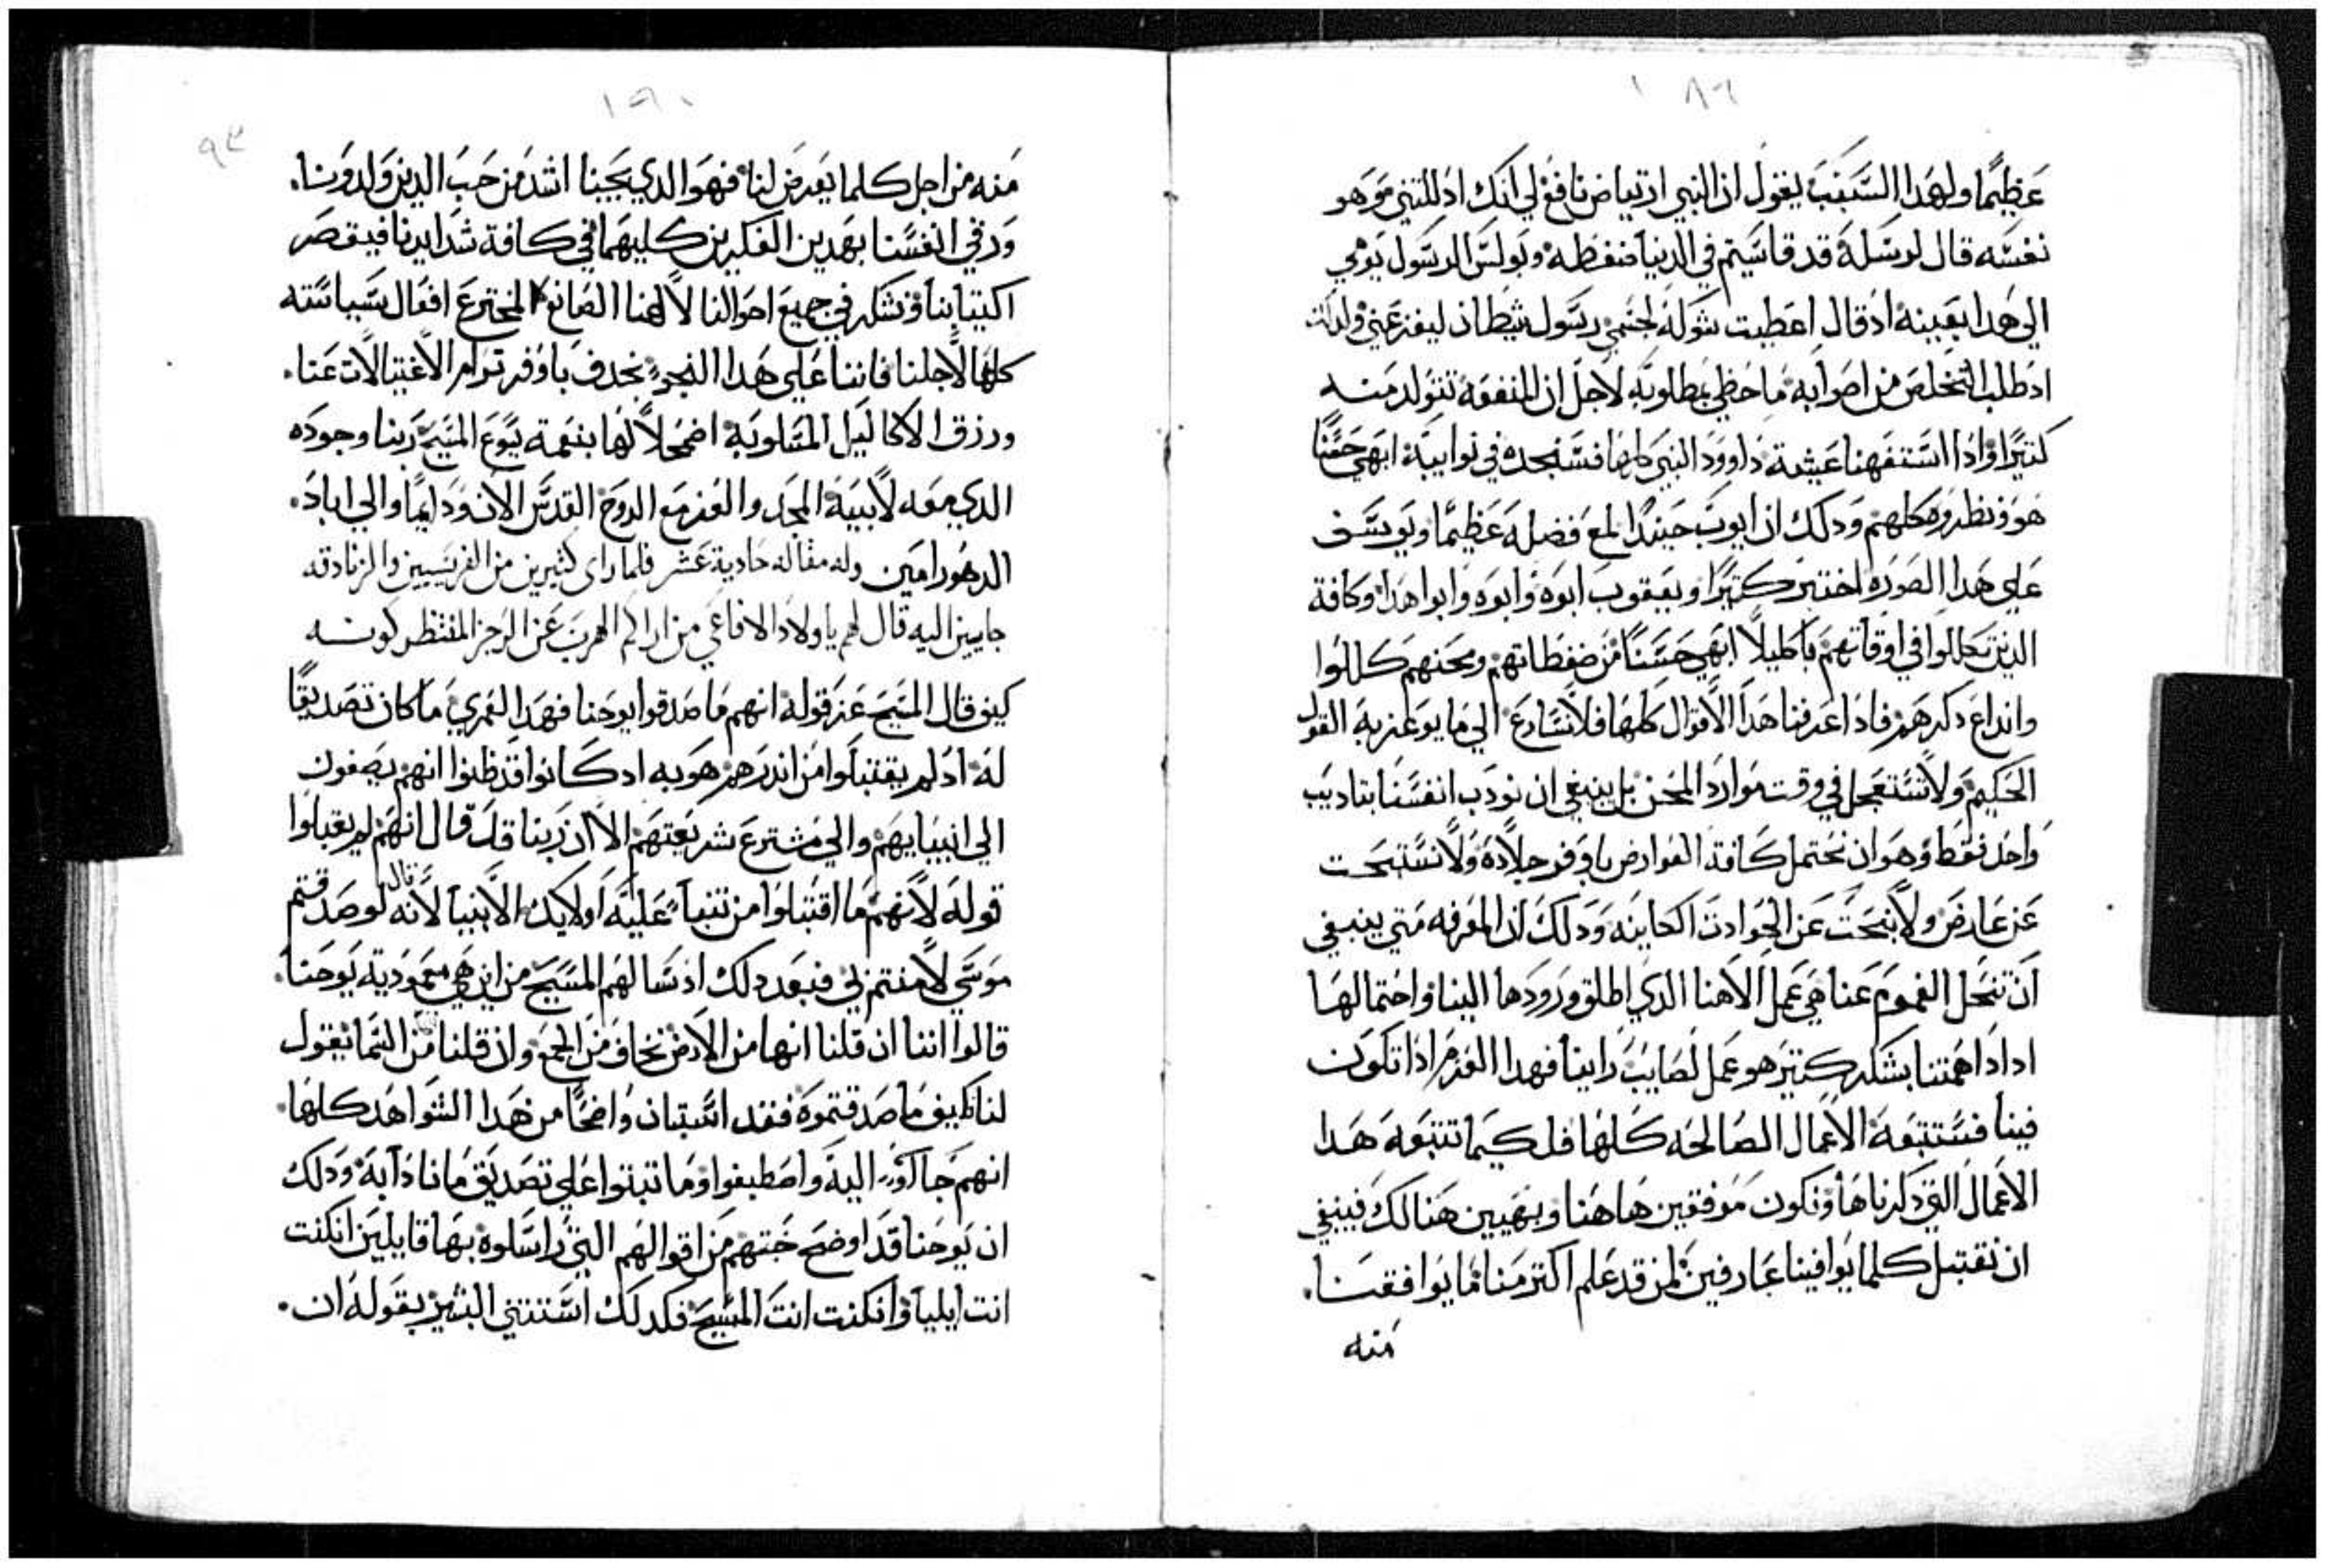 ١٨٩
عظيمًا ولهدا السبب يقول ان النبي ارتياض نافع لي انك ادللتني وهو
نفسه قال لرسله قد قاسيتم في الدنيا ضغطه وبولس الرسول يومي
الي هدا بعينه اد قال اعطيت شوكة لجسمي رسول شيطان ليفزعني ولدلك
اد طلب التخلص من اصوابه ما حظي بمطلوبه لاجل ان المنفعة تتولد منه
كتيرًا وادا استفهنا عيشة داوود النبي كلها فسنجده في نوايبه ابهي حسنًا
هو ونظروه كلهم ودلك ان ايوب حينيدًا لمع فضله عظيمًا ويوسف
علي هدا الصوره اختبر كتيرًا ويعقوب ابوه وابوه وابوا هدا وكافة
الدين تكللوا في اوقاتهم باكليلاً ابهي حسنًا من ضغطاتهم ومحنهم كللوا
وانداع دكرهم فادا عرفنا هدا الاقوال كلها فلا نسارع الي ما يوعز به القول
الحكيم ولا نستعجل في وقت موارد المحن بل ينبغي ان نودب انفسنا بتاديب
واحد فقط وهو ان نحتمل كافة العوارض باوفر جلادة ولا نستبحت
عن عارض ولا نبحت عن الحوادت الكاينه ودلك ان المعرفه متي ينبغي
ان تنحل الغموم عنا هي عمل الاهنا الدي اطلق ورودها الينا واحتمالها
ادا داهمتنا بشكر كتير هو عمل لصايب راينا فهدا العزم ادا تكون
فينا فستتبعه الاعمال الصالحه كلها فلكيما تتبعه هدا
الاعمال التي دكرناها ونكون موفقين هاهنا وبهيين هنالك فينبغي
ان نقتبل كلما يوافينا عارفين لمن قد علم اكتر منا ما يوافقنا.
منه
١٩٠
٩٣
منه من اجل كلما يعرض لنا فهو الدي يحبنا اشد من حب الدين ولدونا.
ورقي انفسنا بهدين الفكرين كليهما في كافة شدايدنا فيقصر
اكتيابنا ونشكر في جميع احوالنا لالهنا الصانع المخترع افعال سياسته
كلها لاجلنا فاننا علي هدا النحو نحدف باوفر ترام الاغتيالات عنا.
ورزق الاكاليل المتساويه اضمحلالها بنعمة يسوع المسيح ربنا وجوده
الدي معه لابيه المجد والعز مع الروح القدس الان ودايمًا والي اباد.
الدهور امين وله مقاله حادية عشر فلما راى كثيرين من الفريسيين والزنادقه
جايين اليه قال لهم يا ولاد الافاعي من اراكم الهرب عن الرجز المنتظر كونه
كيف قال المسيح عنر قوله انهم ما صدقوا يوحنا فهدا لعمري ما كان تصديقًا
له اد لم يقتبلوا من اندرهم هو به اد كانوا قد ظنوا انهم يصغون
الي انبيايهم والي مشترع شريعتهم الا ان ربنا قد قال انهم لم يقبلوا
قوله لانهم ما اقتبلوا من تنبأ عليه اولايك الانبيا لانه قال لو صدقتم
موسي لامنتم بي فبعد دلك اد سالهم المسيح من اين هي معمودية يوحنا.
قالوا اننا ان قلنا انها من الارض نخاف من الجمع وان قلنا من السما يقول
لنا كيف ما صدقتموه فقد استبان واضحًا من هدا الشواهد كلها
انهم جاآوا اليه واصطبغوا وما تبتوا علي تصديق ما نادا به ودلك
ان يوحنا قد اوضح خبتهم من اقوالهم التي راسلوه بها قايلين ان كنت
انت ايليا وان كنت انت المسيح فكدلك استتني البشير بقوله ان.